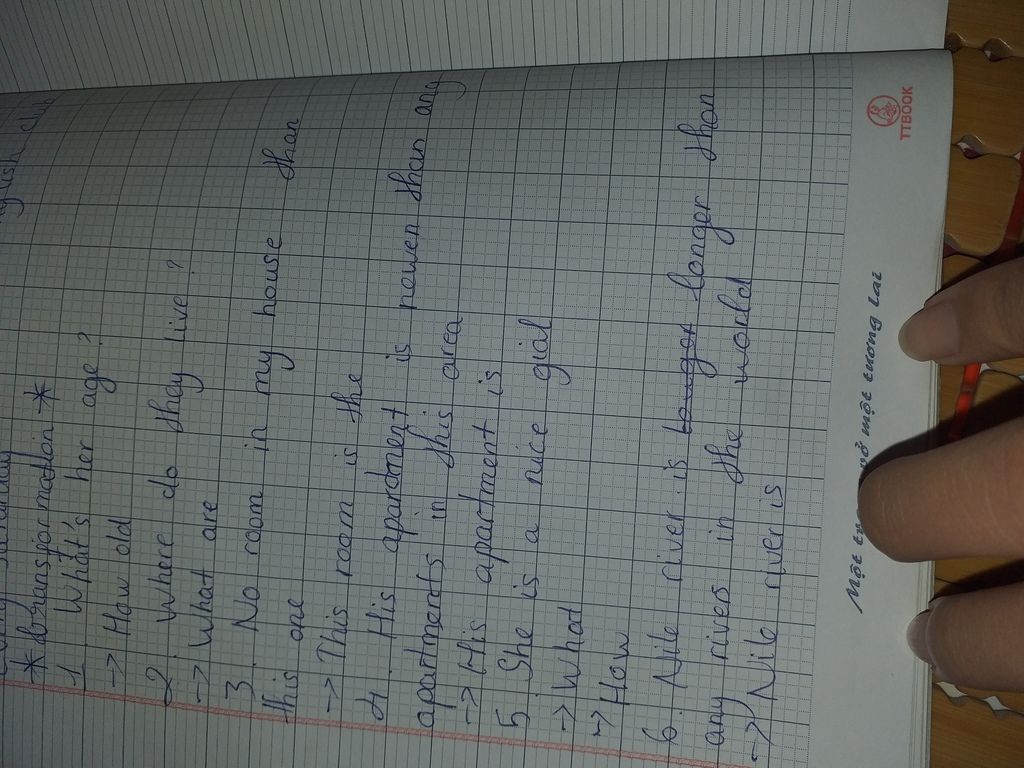 * transformation *
1. What's her age?
-> How old
2. Where do they live?
-> What are
3. No room in my house than
this one
-> This room is the
4. His apartment is newen than any
apartments in this area
-> His apartment is
5. She is a nice gid
-> What
-> How
6. Nile river is longer than
any rivers in the world
-> Nile river is
Một tương lai
TTBOOK